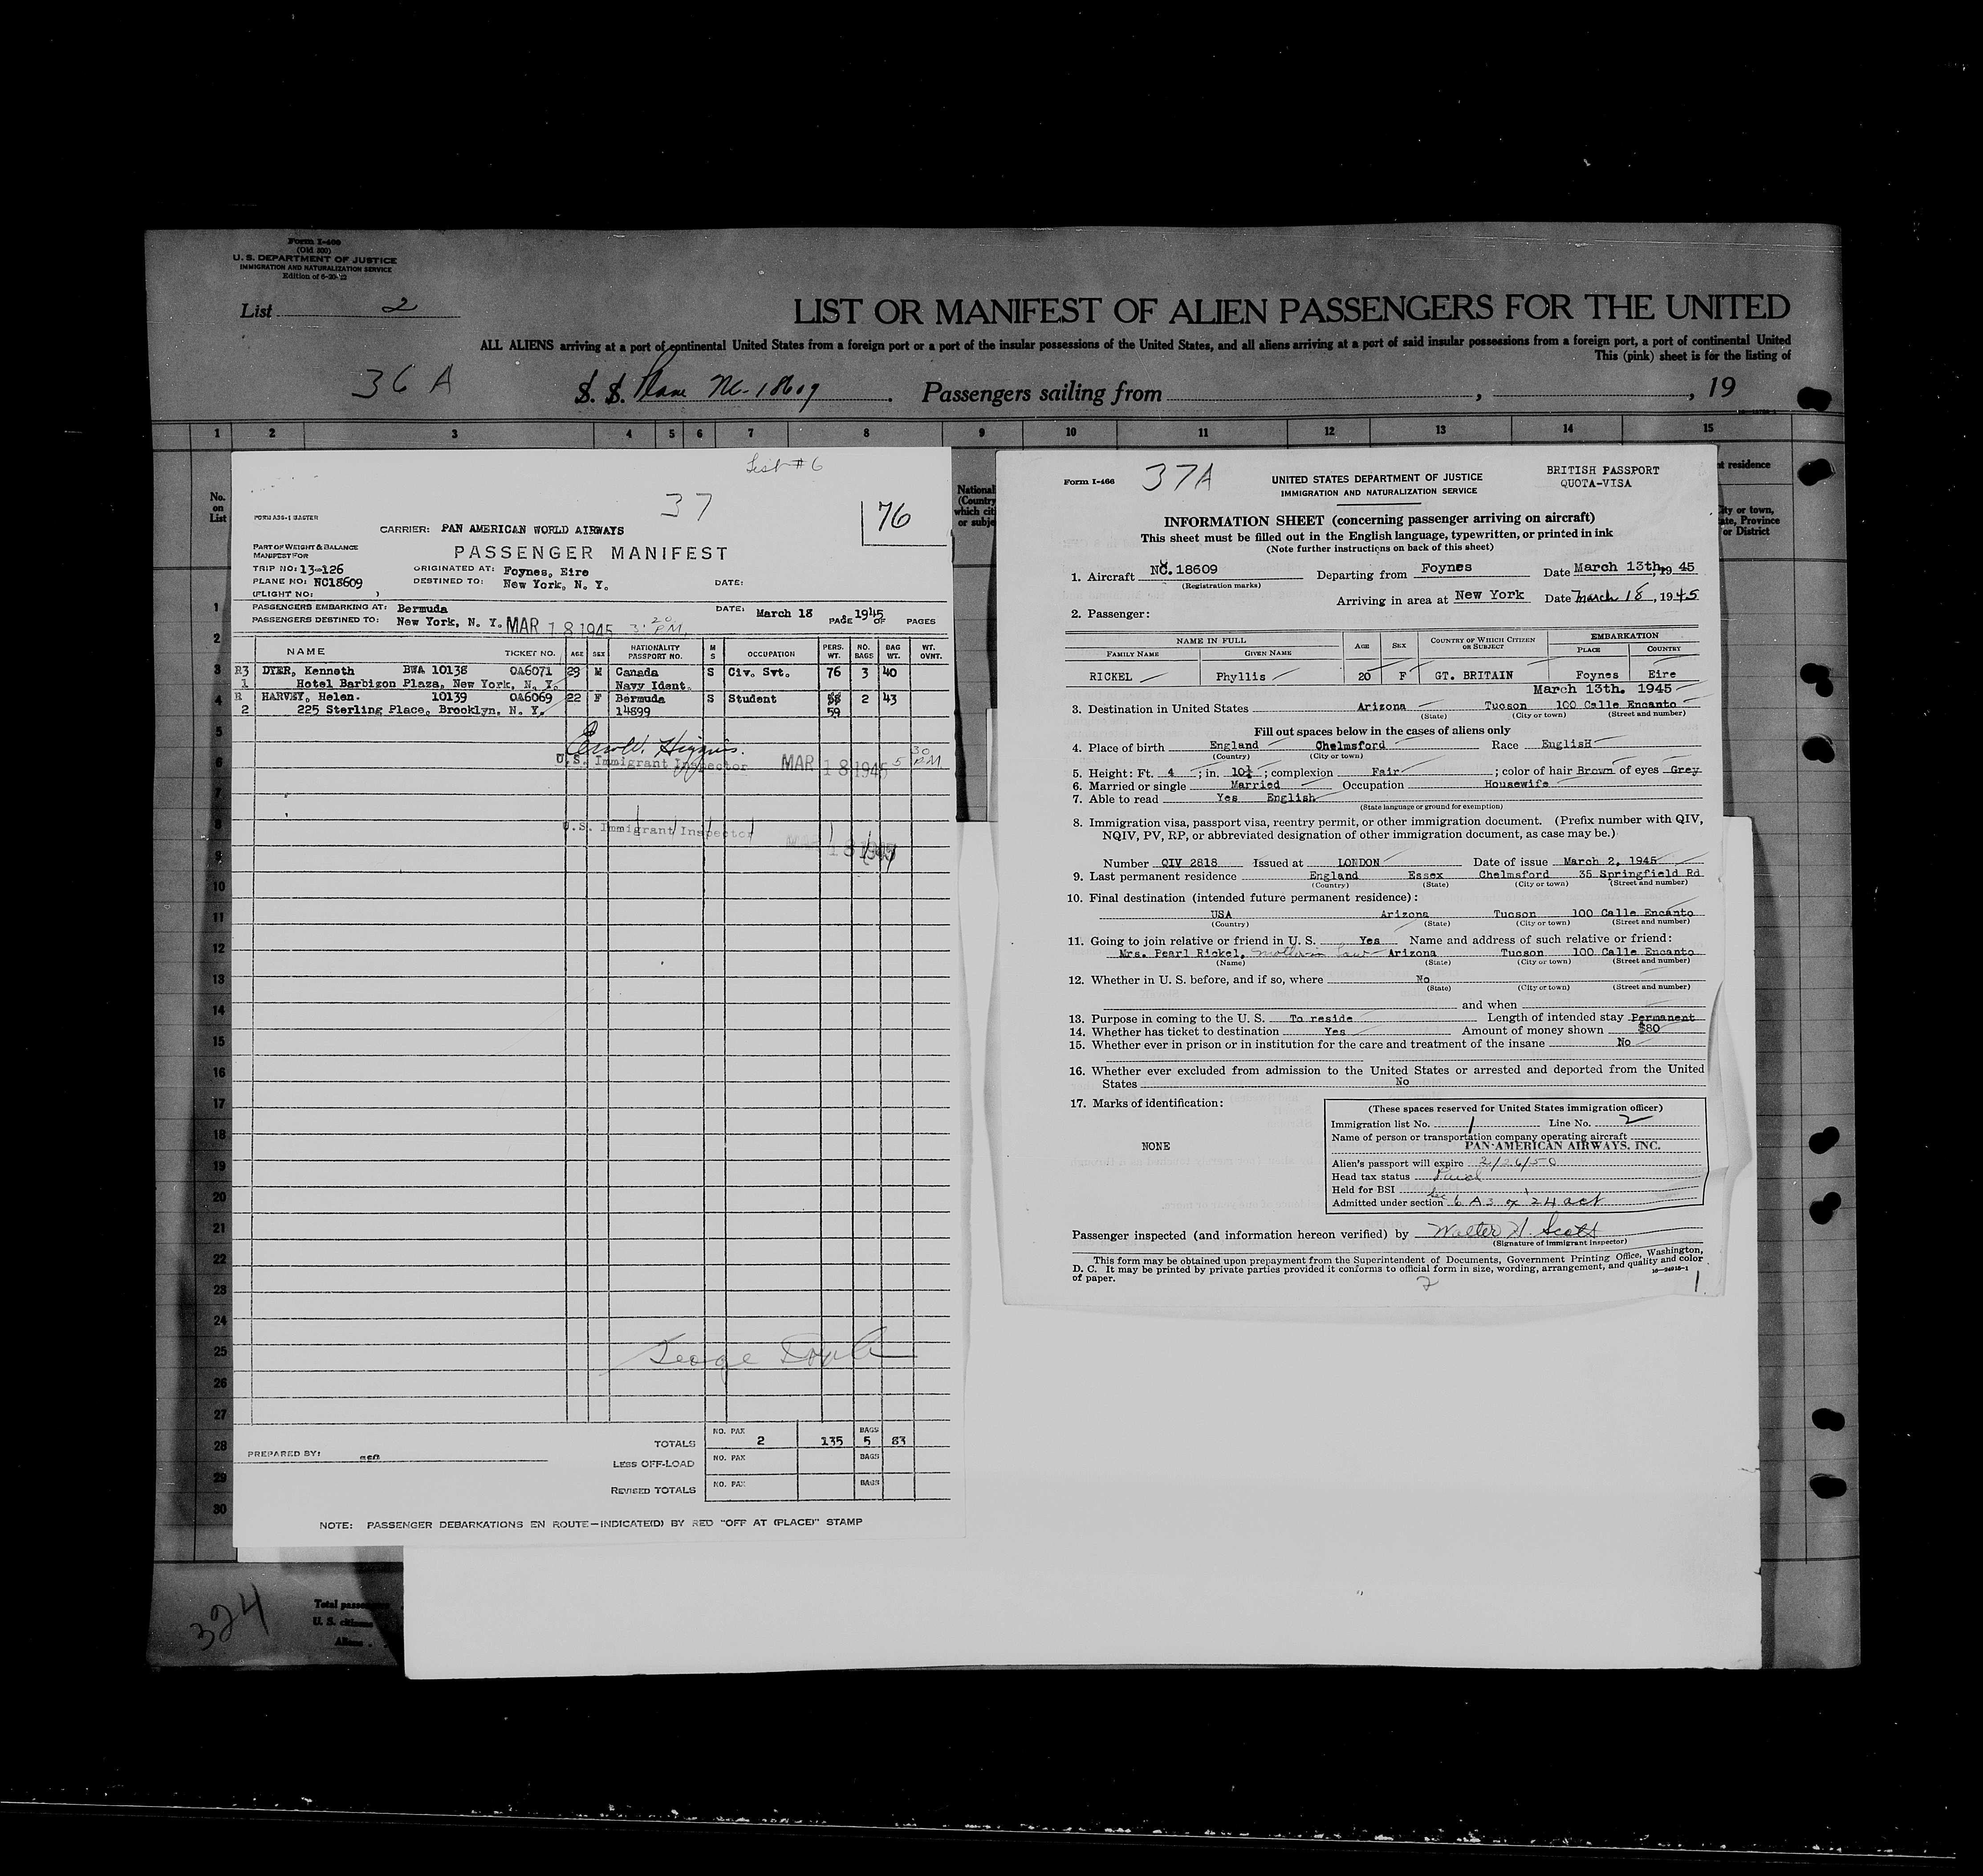 Form I-466
(Old 500)
U. S. DEPARTMENT OF JUSTICE
IMMIGRATION AND NATURALIZATION SERVICE
List 2
LIST OR MANIFEST OF ALIEN PASSENGERS FOR THE UNITED
ALL ALIENS arriving at a port of continental United States from a foreign port or a port of the insular possessions of the United States, and all aliens arriving at a port of said insular possessions from a foreign port, a port of continental United
This (pink) sheet is for the listing of
36 A S. S. Plane NC-18609. Passengers sailing from , , 19
1 2 3 4 5 6 7 8 9 10 11 12 13 14 15
No. on List
National
(Country
which citi
or subje
residence
City or town,
ate, Province
or District
List #6
37
76
CARRIER: PAN AMERICAN WORLD AIRWAYS
PART OF WEIGHT & BALANCE
MANIFEST FOR
PASSENGER MANIFEST
TRIP NO: 13-126 ORIGINATED AT: Foynes, Eire
PLANE NO: NC18609 DESTINED TO: New York, N. Y. DATE:
(FLIGHT NO: )
PASSENGERS EMBARKING AT: Bermuda DATE: March 18, 1945
PASSENGERS DESTINED TO: New York, N. Y. MAR 18 1945 3:20 P.M. PAGE OF PAGES
NAME TICKET NO. AGE SEX NATIONALITY PASSPORT NO. M S OCCUPATION PERS. WT. NO. BAGS BAG WT. WT. OVNT.
R3 DYER, Kenneth BWA 10138 OA6071 29 M Canada S Civ. Svt. 76 3 40
1 Hotel Barbizon Plaza, New York, N. Y. Navy Ident.
R HARVEY, Helen. 10139 OA6069 22 F Bermuda S Student 2 43
2 225 Sterling Place, Brooklyn, N. Y. 14899 59
Higgins.
U.S. Immigrant Inspector MAR 18 1945 5 30 PM
U.S. Immigrant Inspector MAR 18 1945
1
2
3
4
5
6
7
8
9
10
11
12
13
14
15
16
17
18
19
20
21
22
23
24
25
26
27
28
29
30
George
TOTALS NO. PAX 2 135 BAGS 5 83
PREPARED BY:
LESS OFF-LOAD NO. PAX BAGS
REVISED TOTALS NO. PAX BAGS
NOTE: PASSENGER DEBARKATIONS EN ROUTE—INDICATE(D) BY RED "OFF AT (PLACE)" STAMP
324
Total passe
U. S. citizens
Aliens
Form I-466
37A
UNITED STATES DEPARTMENT OF JUSTICE
IMMIGRATION AND NATURALIZATION SERVICE
BRITISH PASSPORT
QUOTA-VISA
INFORMATION SHEET (concerning passenger arriving on aircraft)
This sheet must be filled out in the English language, typewritten, or printed in ink
(Note further instructions on back of this sheet)
1. Aircraft NC. 18609 Departing from Foynes Date March 13th, 19 45
(Registration marks)
Arriving in area at New York Date March 18, 1945
2. Passenger:
NAME IN FULL AGE SEX COUNTRY OF WHICH CITIZEN OR SUBJECT EMBARKATION
FAMILY NAME GIVEN NAME PLACE COUNTRY
RICKEL Phyllis 20 F GT. BRITAIN Foynes Eire
March 13th. 1945
3. Destination in United States Arizona Tucson 100 Calle Encanto
(State) (City or town) (Street and number)
Fill out spaces below in the cases of aliens only
4. Place of birth England Chelmsford Race EnglisH
(Country) (City or town)
5. Height: Ft. 4 ; in. 10½ ; complexion Fair ; color of hair Brown of eyes Grey
6. Married or single Married Occupation Housewife
7. Able to read Yes English
(State language or ground for exemption)
8. Immigration visa, passport visa, reentry permit, or other immigration document. (Prefix number with QIV,
NQIV, PV, RP, or abbreviated designation of other immigration document, as case may be.)
Number QIV 2818 Issued at LONDON Date of issue March 2, 1945
9. Last permanent residence England Essex Chelmsford 35 Springfield Rd
(Country) (State) (City or town) (Street and number)
10. Final destination (intended future permanent residence):
USA Arizona Tucson 100 Calle Encanto
(Country) (State) (City or town) (Street and number)
11. Going to join relative or friend in U. S. Yes Name and address of such relative or friend:
Mrs. Pearl Rickel, mother in law Arizona Tucson 100 Calle Encanto
(Name) (State) (City or town) (Street and number)
12. Whether in U. S. before, and if so, where No
(State) (City or town) (Street and number)
and when
13. Purpose in coming to the U. S. To reside Length of intended stay Permanent
14. Whether has ticket to destination Yes Amount of money shown $80
15. Whether ever in prison or in institution for the care and treatment of the insane No
16. Whether ever excluded from admission to the United States or arrested and deported from the United
States No
17. Marks of identification:
NONE
(These spaces reserved for United States immigration officer)
Immigration list No. 1 Line No. 2
Name of person or transportation company operating aircraft
PAN-AMERICAN AIRWAYS, INC.
Alien's passport will expire 2/26/50
Head tax status Paid
Held for BSI
Admitted under section Sec 6 A 3 of '24 act
Passenger inspected (and information hereon verified) by Walter H. Scott
(Signature of immigrant inspector)
This form may be obtained upon prepayment from the Superintendent of Documents, Government Printing Office, Washington,
D. C. It may be printed by private parties provided it conforms to official form in size, wording, arrangement, and quality and color
of paper.
2
1